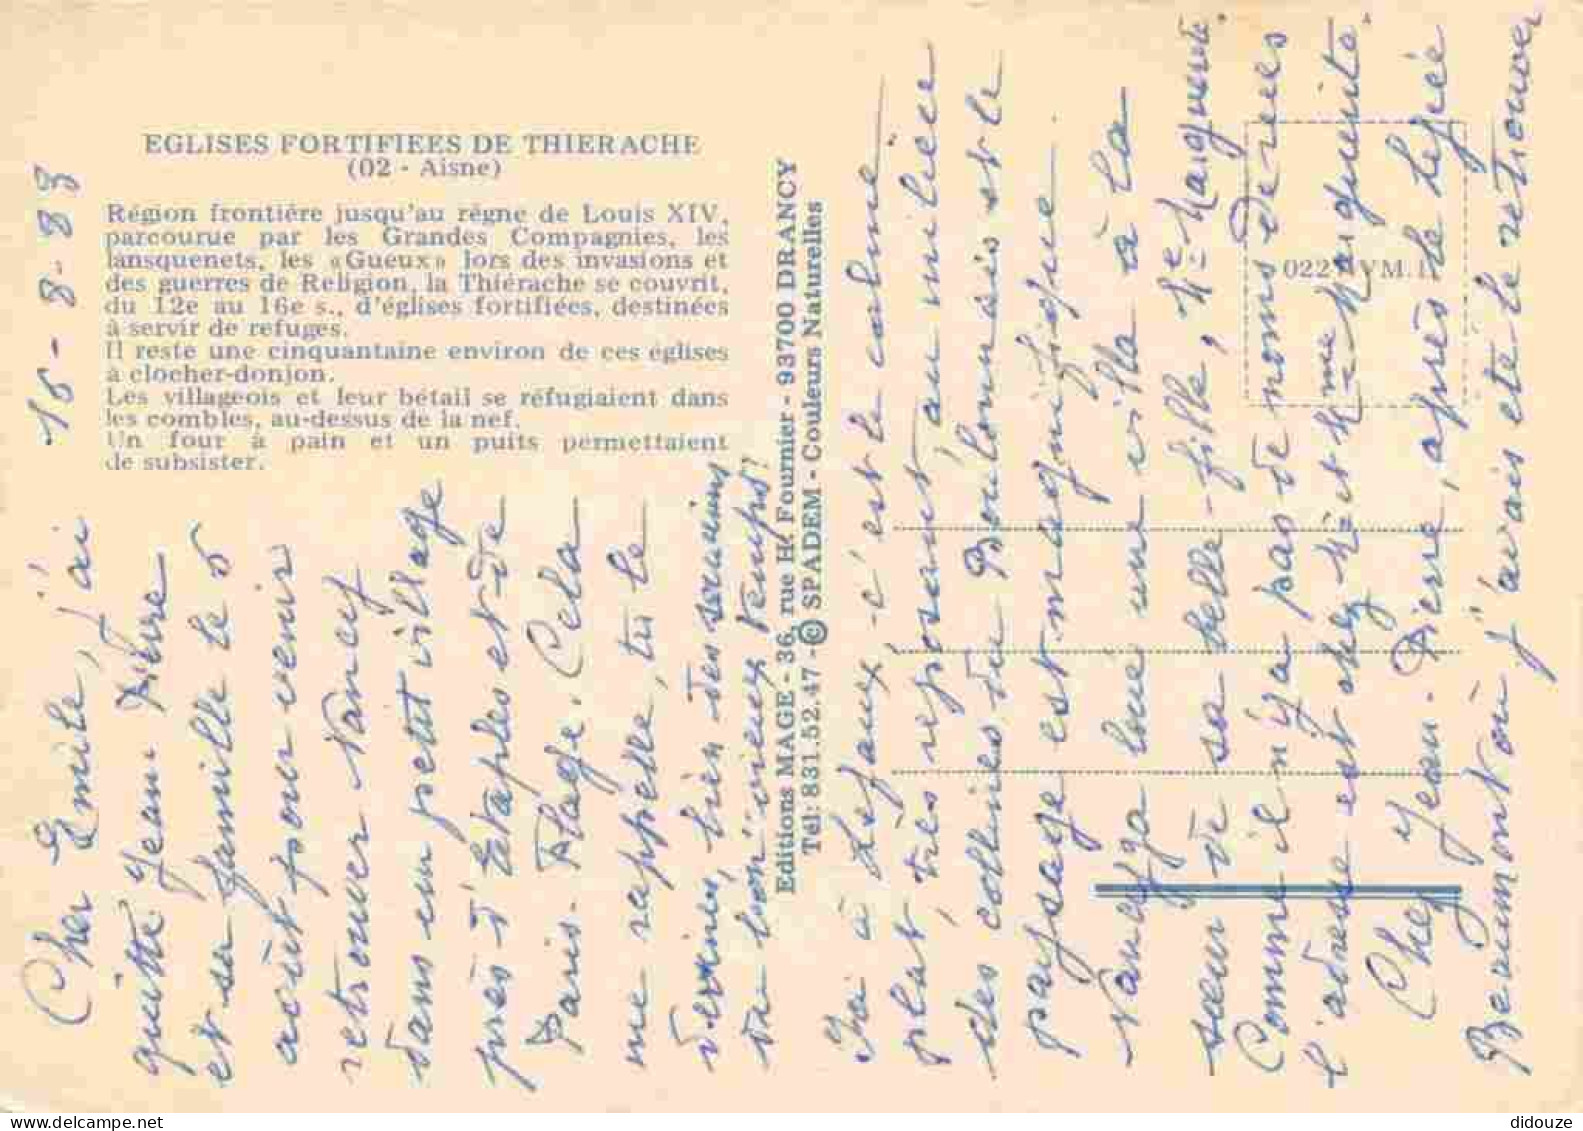 EGLISES FORTIFIEES DE THIERACHE
(02 - Aisne)
Région frontière jusqu'au règne de Louis XIV,
parcourue par les Grandes Compagnies, les
lansquenets, les «Gueux» lors des invasions et
des guerres de Religion, la Thiérache se couvrit,
du 12e au 16e s., d'églises fortifiées, destinées
à servir de refuges.
Il reste une cinquantaine environ de ces églises
à clocher-donjon.
Les villageois et leur bétail se réfugiaient dans
les combles, au-dessus de la nef.
Un four à pain et un puits permettaient
de subsister.
Editions MAGE - 36, rue H. Fournier - 93700 DRANCY
Tél: 831.52.47 - © SPADEM - Couleurs Naturelles
022 VM.
16-8-83
Cher Emile, j'ai
quitté Jean-Pierre
et sa famille le 5
août pour venir
retrouver Nancy
dans un petit village
près d'Etaples et de
Paris-Plage. Cela
me rappelle, tu le
devines, bien des souvenirs
du "bon" vieux temps!
Ici à Lefaux, c'est le calme
plat, très reposant, au milieu
des collines du Boulonnais et le
paysage est magnifique.
Nancy a loué une villa à la
sœur de sa belle-fille, Mme Marguerite.
Comme il n'y a pas de noms de rues
l'adresse est chez M. et Mme Marguerite.
Chez Jean-Pierre, après le lycée
Beaumont où j'avais été le retrouver